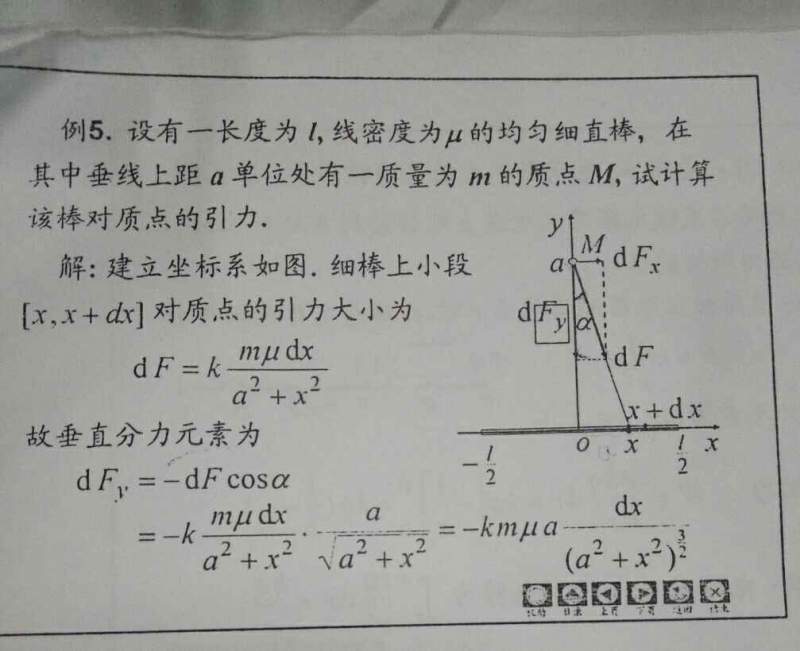 例5. 设有一长度为 l, 线密度为 μ 的均匀细直棒, 在
其中垂线上距 a 单位处有一质量为 m 的质点 M, 试计算
该棒对质点的引力.
解: 建立坐标系如图. 细棒上小段
[x, x + dx] 对质点的引力大小为
dF = k mμdx / (a² + x²)
故垂直分力元素为
dF_y = −dF cosα
= −k mμdx / (a² + x²) · a / √(a² + x²) = −kmμa dx / (a² + x²)^(3/2)
y
M
a
dF_x
dF_y
α
dF
x + dx
−l/2
o
x
l/2
x
目录 上页 下页 返回 结束